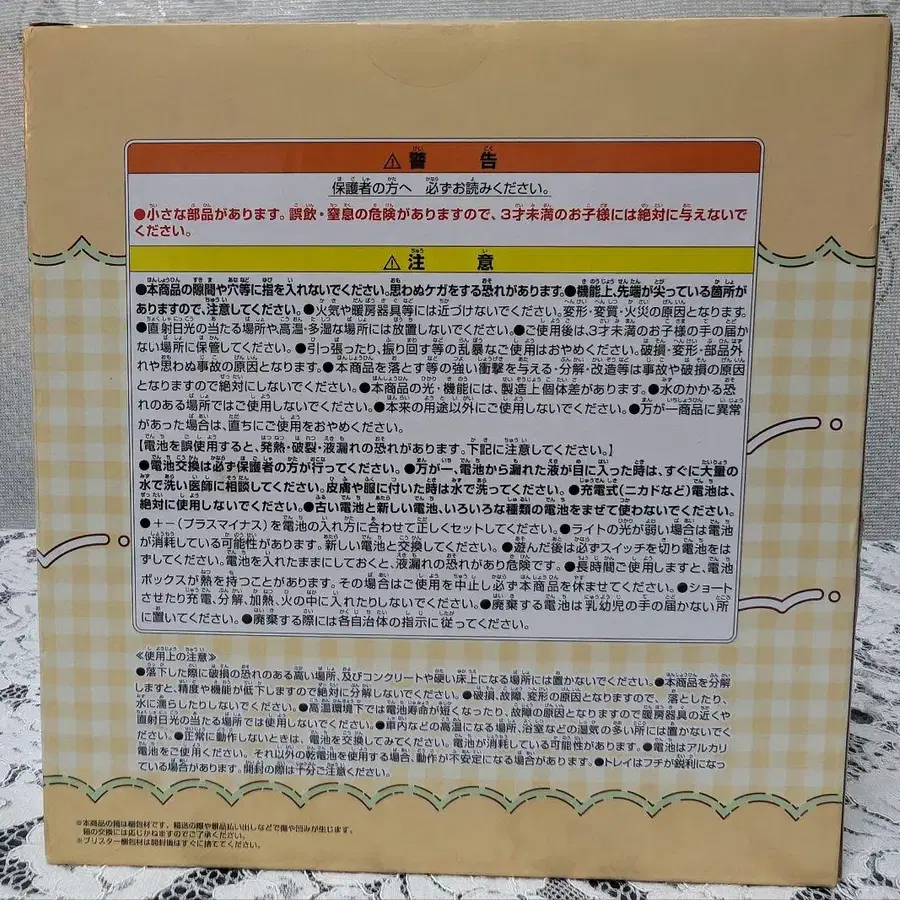 ⚠警告
保護者の方へ 必ずお読みください。
●小さな部品があります。誤飲・窒息の危険がありますので、3才未満のお子様には絶対に与えないで
ください。
⚠注意
●本商品の隙間や穴等に指を入れないでください。思わぬケガをする恐れがあります。●機能上、先端が尖っている箇所が
ありますので、注意してください。●火気や暖房器具等には近づけないでください。変形・変質・火災の原因となります。
●直射日光の当たる場所や、高温・多湿な場所には放置しないでください。●ご使用後は、3才未満のお子様の手の届か
ない場所に保管してください。●引っ張ったり、振り回す等の乱暴なご使用はおやめください。破損・変形・部品外
れや思わぬ事故の原因となります。●本商品を落とす等の強い衝撃を与える・分解・改造等は事故や破損の原因
となりますので絶対にしないでください。●本商品の光・機能には、製造上個体差があります。●水のかかる恐
れのある場所ではご使用しないでください。●本来の用途以外にご使用しないでください。●万が一商品に異常
があった場合は、直ちにご使用をおやめください。
【電池を誤使用すると、発熱・破裂・液漏れの恐れがあります。下記に注意してください。】
●電池交換は必ず保護者の方が行ってください。●万が一、電池から漏れた液が目に入った時は、すぐに大量の
水で洗い医師に相談してください。皮膚や服に付いた時は水で洗ってください。●充電式(ニカドなど)電池は、
絶対に使用しないでください。●古い電池と新しい電池、いろいろな種類の電池をまぜて使わないでください。
●+-(プラスマイナス)を電池の入れ方に合わせて正しくセットしてください。●ライトの光が弱い場合は電池
が消耗している可能性があります。新しい電池と交換してください。●遊んだ後は必ずスイッチを切り電池をは
ずしてください。電池を入れたままにしておくと、液漏れの恐れがあり危険です。●長時間ご使用しますと、電池
ボックスが熱を持つことがあります。その場合はご使用を中止し必ず本商品を休ませてください。●ショート
させたり充電、分解、加熱、火の中に入れたりしないでください。●廃棄する電池は乳幼児の手の届かない所
に置いてください。●廃棄する際には各自治体の指示に従ってください。
≪使用上の注意≫
●落下した際に破損の恐れのある高い場所、及びコンクリートや硬い床上になる場所には置かないでください。●本商品を分解
しますと、精度や機能が低下しますので絶対に分解しないでください。●破損、故障、変形の原因となりますので、落としたり、
水に濡らしたりしないでください。●高温環境下では電池寿命が短くなったり、故障の原因となりますので暖房器具の近くや
直射日光の当たる場所では使用しないでください。●車内などの高温になる場所、浴室などの湿気の多い所には置かないでく
ださい。●正常に動作しないときは、電池を交換してみてください。電池が消耗している可能性があります。●電池はアルカリ
電池をご使用ください。それ以外の乾電池を使用する場合、動作が不安定になる場合があります。●トレイはフチが鋭利になっ
ている場合があります。開封の際は十分ご注意ください。
※本商品の箱は梱包材です。輸送の際や景品払い出しなどで傷や凹みが生じます。
箱の交換には応じかねますのでご了承ください。
※ブリスター梱包材は開封後はすぐに捨ててください。